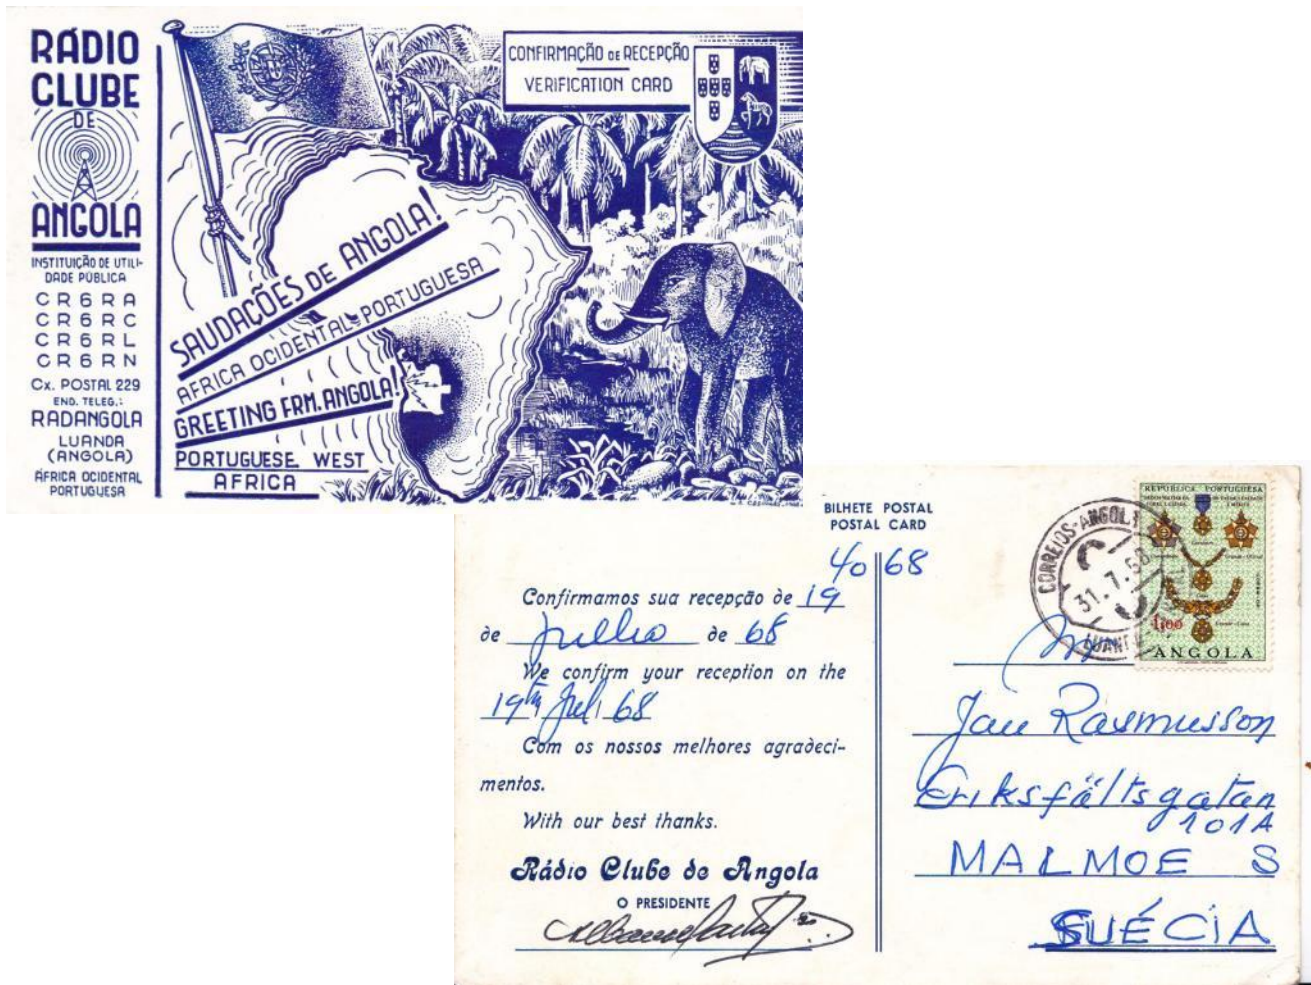 RÁDIO
CLUBE
DE
ANGOLA
INSTITUIÇÃO DE UTILI-
DADE PÚBLICA
CR6RA
CR6RC
CR6RL
CR6RN
Cx. POSTAL 229
END. TELEG.:
RADANGOLA
LUANDA
(ANGOLA)
ÁFRICA OCIDENTAL
PORTUGUESA
CONFIRMAÇÃO DE RECEPÇÃO
VERIFICATION CARD
SAUDAÇÕES DE ANGOLA!
AFRICA OCIDENTAL PORTUGUESA
GREETING FRM. ANGOLA!
PORTUGUESE WEST
AFRICA
BILHETE POSTAL
POSTAL CARD
40 68
Confirmamos sua recepção de 19
de Julho de 68
We confirm your reception on the
19th Jul 68
Com os nossos melhores agradeci-
mentos.
With our best thanks.
Rádio Clube de Angola
O PRESIDENTE
CORREIOS-ANGOLA
31.7.68
REPÚBLICA PORTUGUESA
1$00
ANGOLA
Jan Rasmusson
Eriksfältsgatan
101A
MALMOE S
SUÉCIA